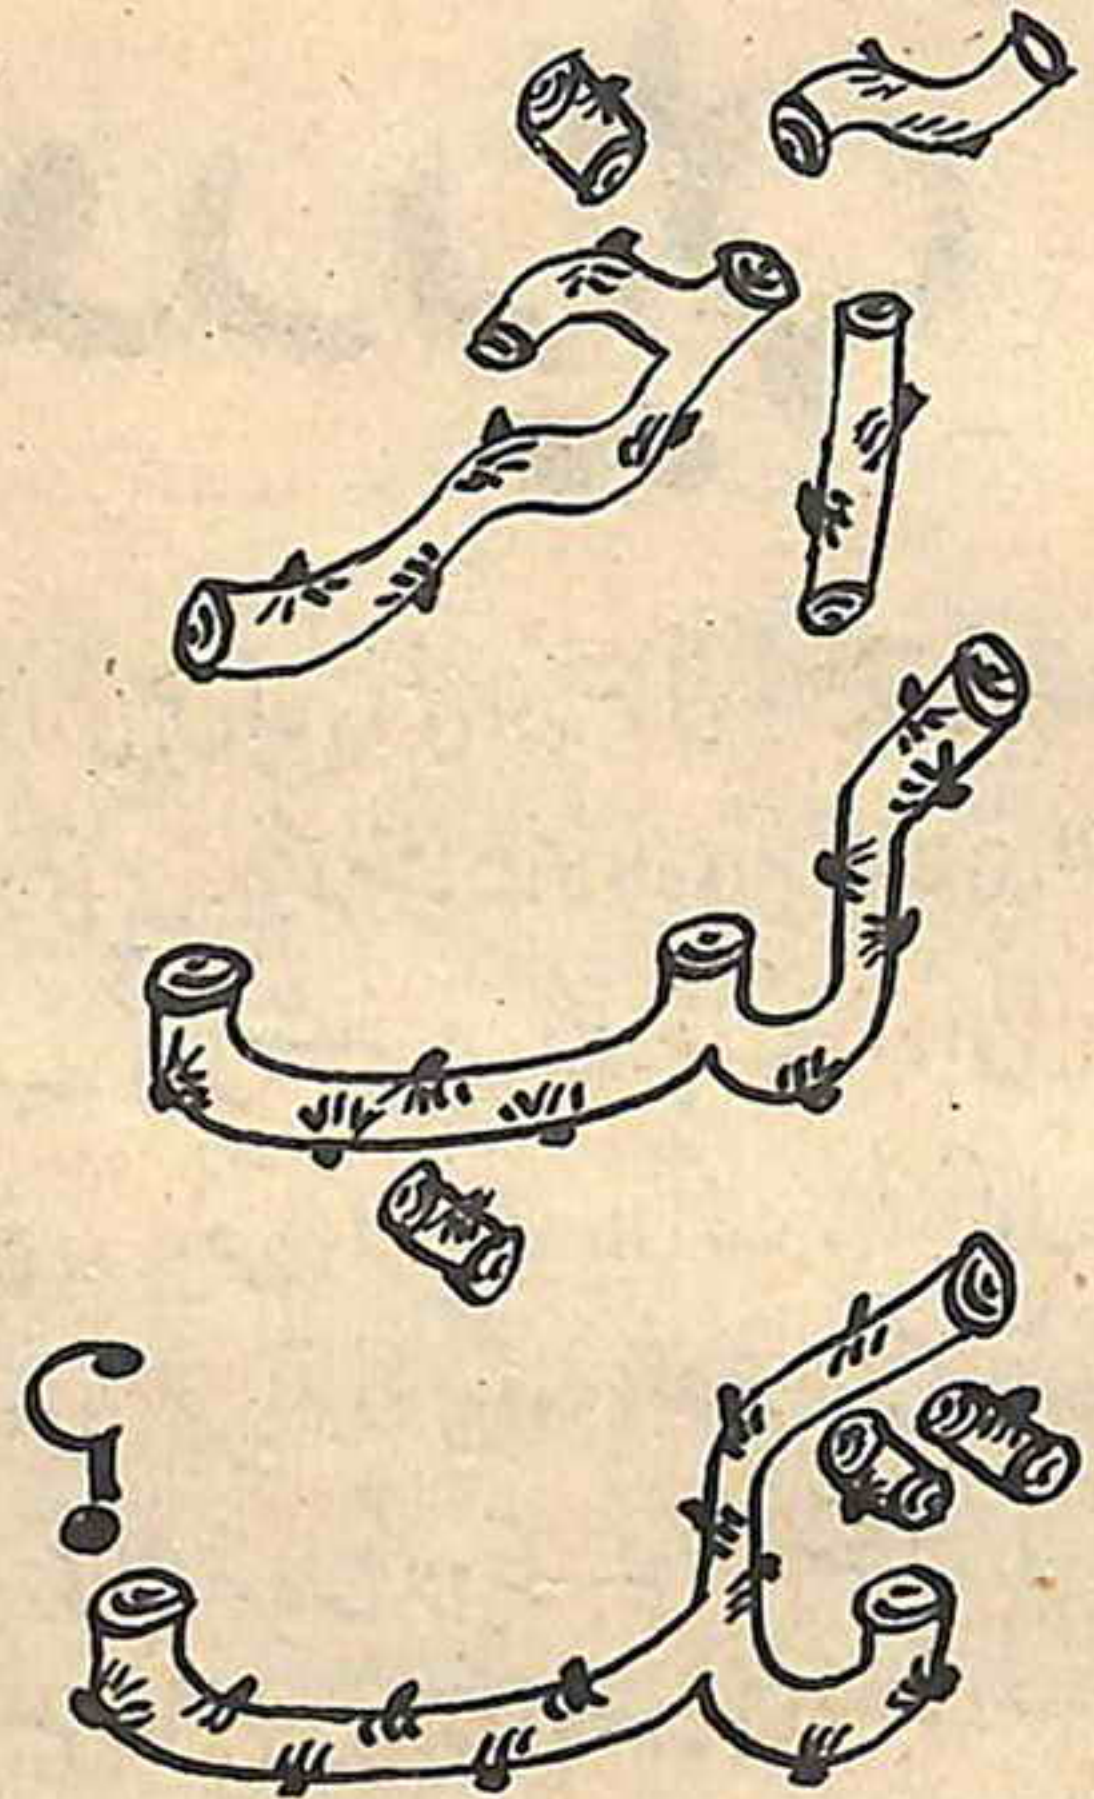 آخر
کب
تک؟